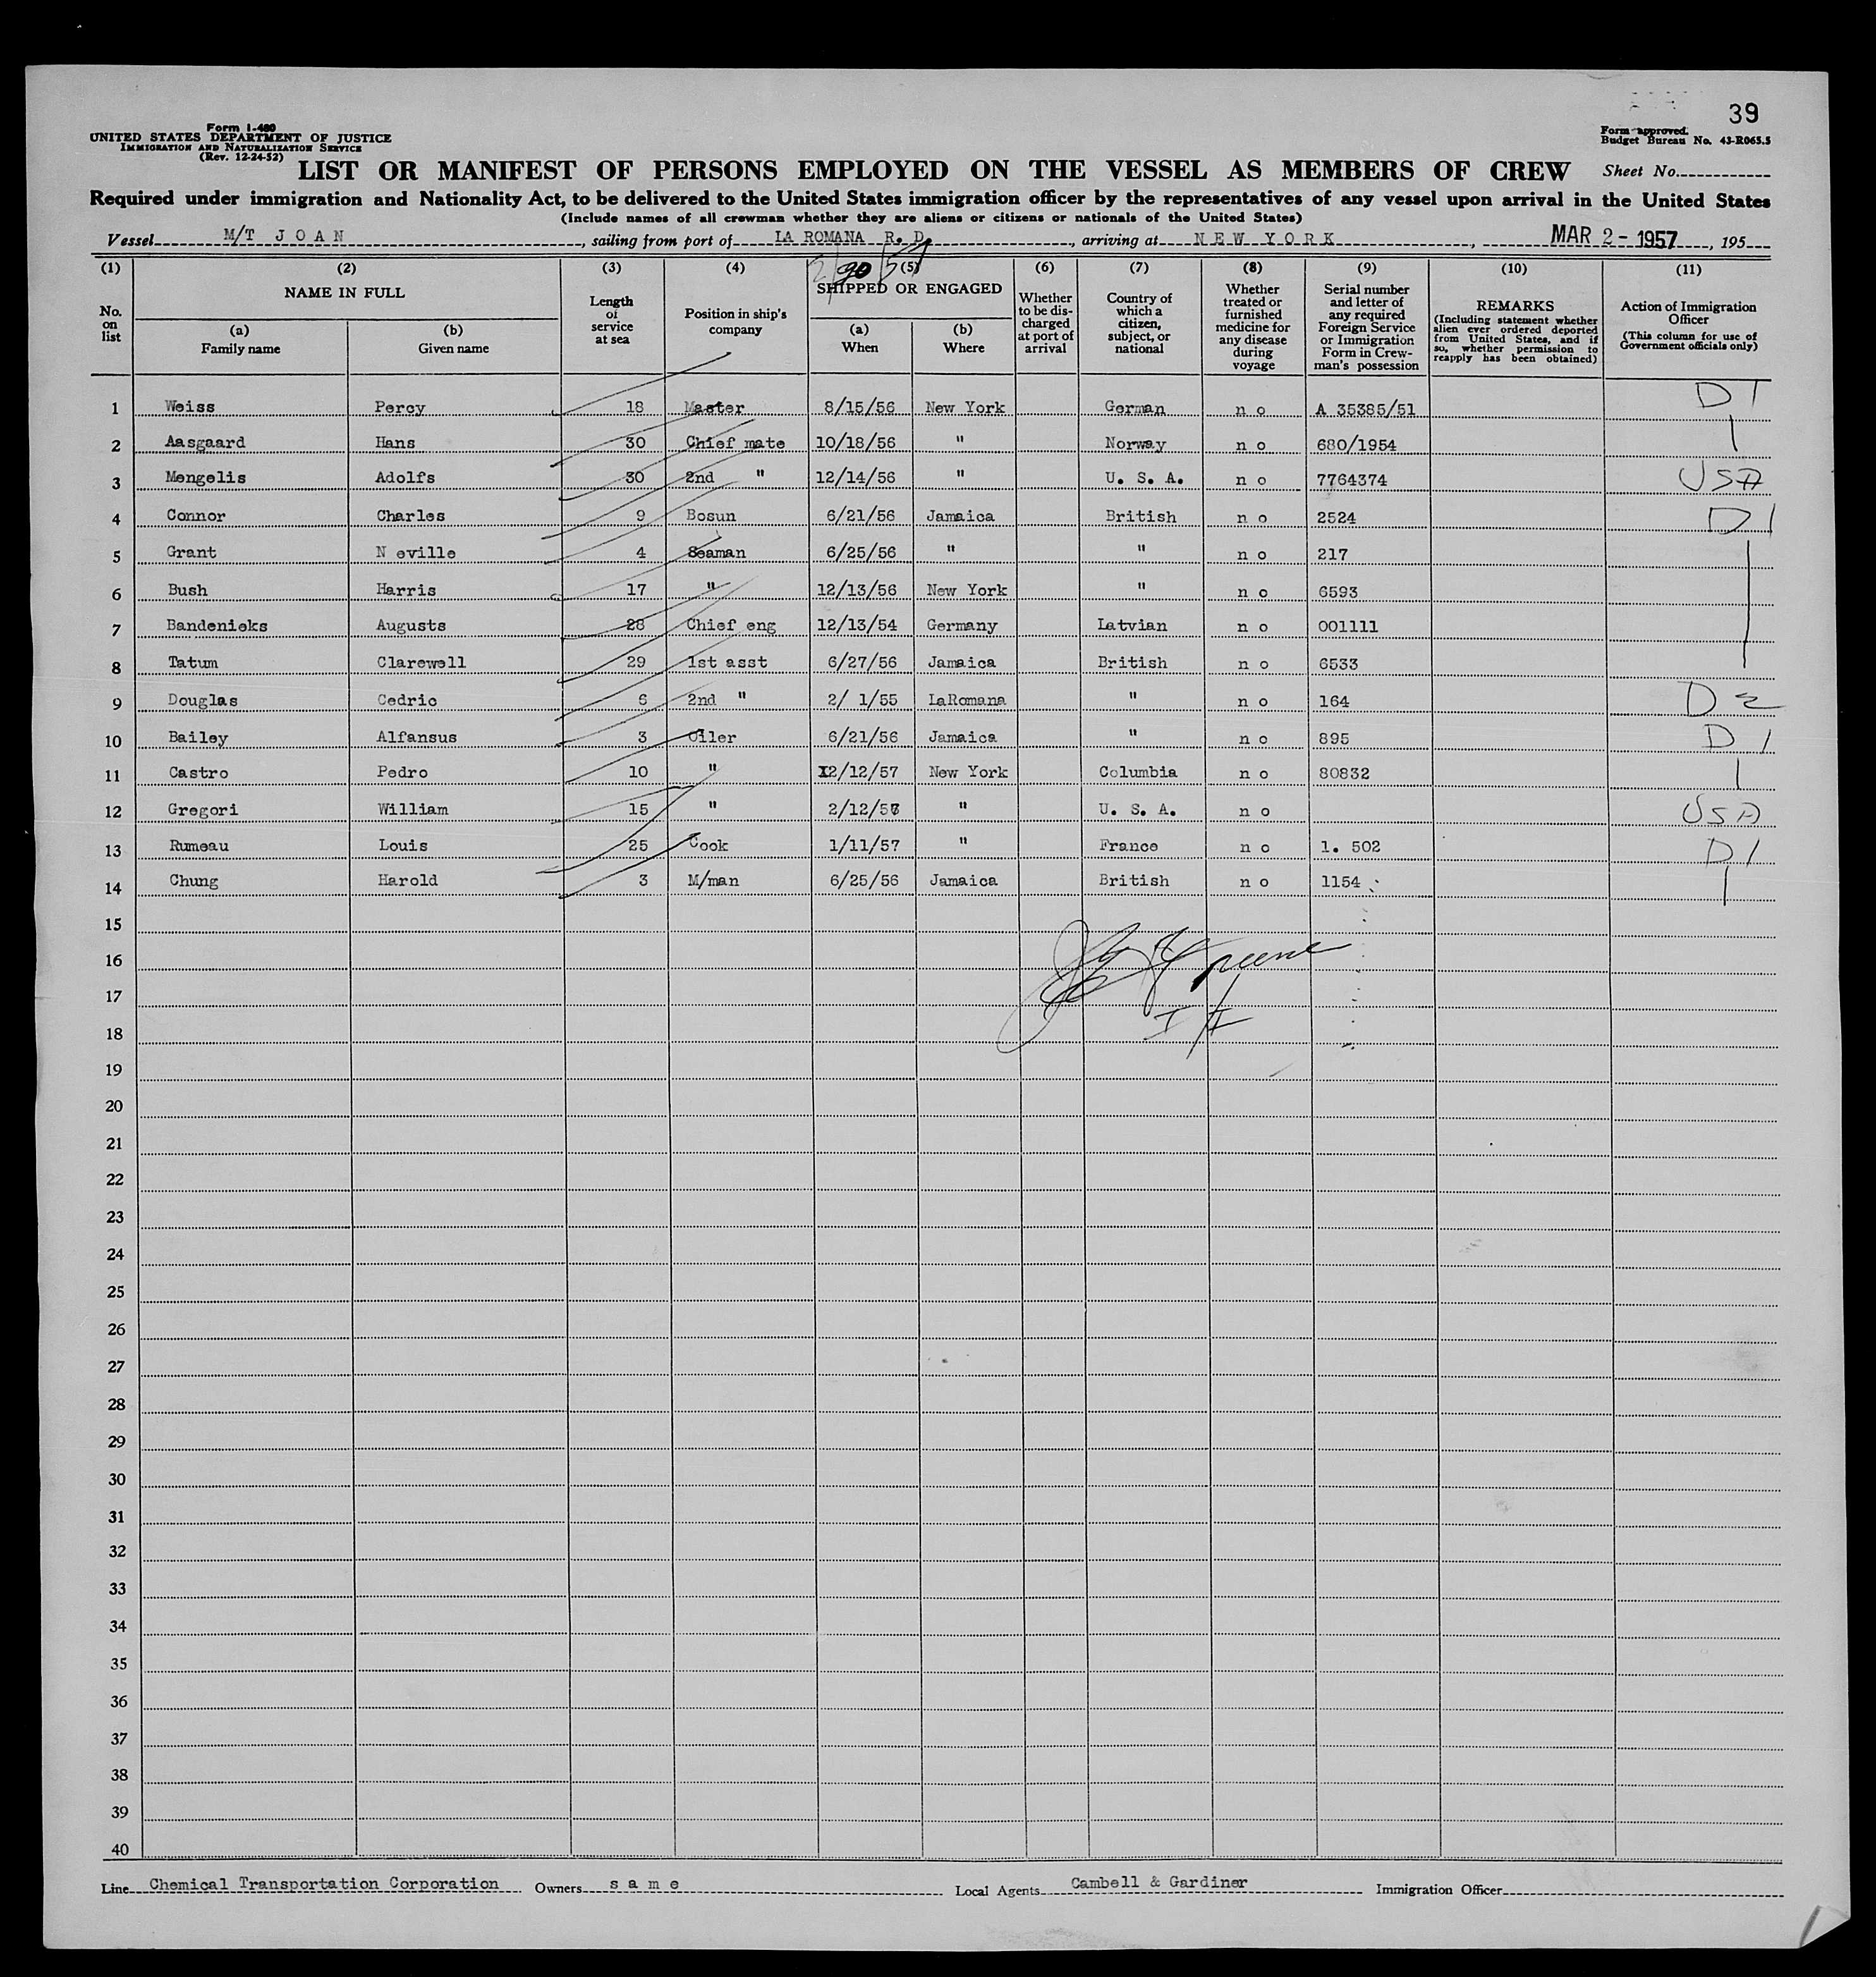 39
Form I-480
UNITED STATES DEPARTMENT OF JUSTICE
IMMIGRATION AND NATURALIZATION SERVICE
(Rev. 12-24-52)
Form approved.
Budget Bureau No. 43-R065.5
LIST OR MANIFEST OF PERSONS EMPLOYED ON THE VESSEL AS MEMBERS OF CREW
Sheet No.
Required under immigration and Nationality Act, to be delivered to the United States immigration officer by the representatives of any vessel upon arrival in the United States
(Include names of all crewman whether they are aliens or citizens or nationals of the United States)
Vessel M/T JOAN, sailing from port of LA ROMANA R. D., arriving at NEW YORK, MAR 2 - 1957, 195
2/20/57
(1) (2) (3) (4) (5) (6) (7) (8) (9) (10) (11)
No. on list
NAME IN FULL
(a) Family name
(b) Given name
Length of service at sea
Position in ship's company
SHIPPED OR ENGAGED
(a) When
(b) Where
Whether to be discharged at port of arrival
Country of which a citizen, subject, or national
Whether treated or furnished medicine for any disease during voyage
Serial number and letter of any required Foreign Service or Immigration Form in Crewman's possession
REMARKS
(Including statement whether alien ever ordered deported from United States, and if so, whether permission to reapply has been obtained)
Action of Immigration Officer
(This column for use of Government officials only)
1 Weiss Percy 18 Master 8/15/56 New York German no A 35385/51 D 1
2 Aasgaard Hans 30 Chief mate 10/18/56 " Norway no 680/1954
3 Mengelis Adolfs 30 2nd " 12/14/56 " U. S. A. no 7764374 USA
4 Connor Charles 9 Bosun 6/21/56 Jamaica British no 2524 D 1
5 Grant N eville 4 Seaman 6/25/56 " " no 217
6 Bush Harris 17 " 12/13/56 New York " no 6593
7 Bandenieks Augusts 28 Chief eng 12/13/54 Germany Latvian no 001111
8 Tatum Clarewell 29 1st asst 6/27/56 Jamaica British no 6533
9 Douglas Cedric 6 2nd " 2/ 1/55 LaRomana " no 164 D 2
10 Bailey Alfansus 3 Oiler 6/21/56 Jamaica " no 895 D 1
11 Castro Pedro 10 " 12/12/57 New York Columbia no 80832
12 Gregori William 15 " 2/12/57 " U. S. A. no USA
13 Rumeau Louis 25 Cook 1/11/57 " France no 1. 502 D 1
14 Chung Harold 3 M/man 6/25/56 Jamaica British no 1154
15
16
17
18
19
20
21
22
23
24
25
26
27
28
29
30
31
32
33
34
35
36
37
38
39
40
Line Chemical Transportation Corporation Owners same Local Agents Cambell & Gardiner Immigration Officer